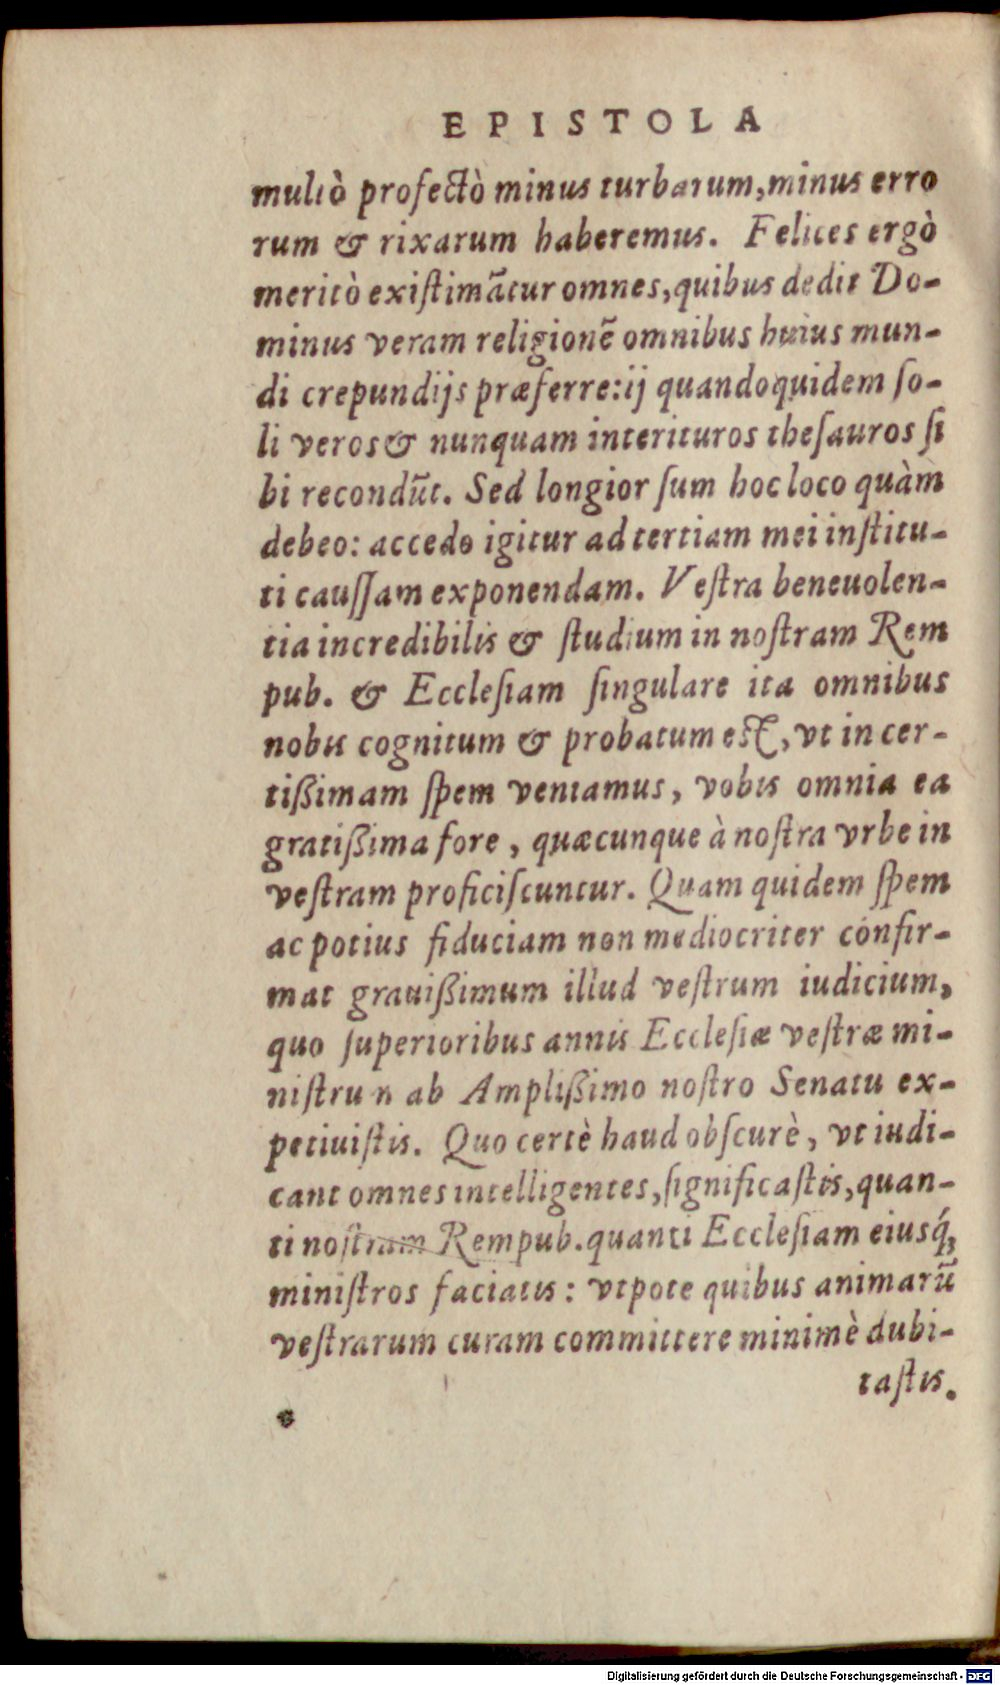 EPISTOLA
multò profectò minus turbarum, minus erro
rum & rixarum haberemus. Felices ergò
meritò existimātur omnes, quibus dedit Do-
minus veram religionē omnibus huius mun-
di crepundijs præferre: ij quandoquidem so-
li veros & nunquam interituros thesauros si
bi recondūt. Sed longior sum hoc loco quàm
debeo: accedo igitur ad tertiam mei institu-
ti caussam exponendam. Vestra beneuolen-
tia incredibilis & studium in nostram Rem
pub. & Ecclesiam singulare ita omnibus
nobis cognitum & probatum est, vt in cer-
tißimam spem veniamus, vobis omnia ea
gratißima fore, quæcunque à nostra vrbe in
vestram proficiscuntur. Quam quidem spem
ac potius fiduciam non mediocriter confir-
mat grauißimum illud vestrum iudicium,
quo superioribus annis Ecclesiæ vestræ mi-
nistrum ab Amplißimo nostro Senatu ex-
petiuistis. Quo certè haud obscurè, vt iudi-
cant omnes intelligentes, significastis, quan-
ti nostram Rempub. quanti Ecclesiam eiusq́;
ministros faciatis: vtpote quibus animarū
vestrarum curam committere minimè dubi-
tastis.
Digitalisierung gefördert durch die Deutsche Forschungsgemeinschaft - DFG